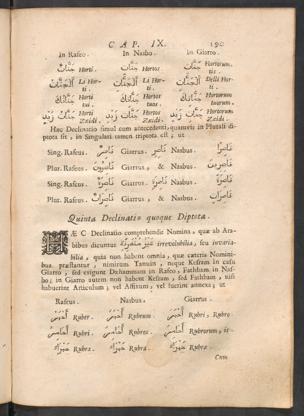 CAP. IX. 190
In Rafeo. In Nasbo. In Giarro.
جَنَّاتٌ Horti. جَنَّاتٍ Hortos جَنَّاتٍ Hortorum.
الْجَنَّاتُ Li Horti. الْجَنَّاتِ Li Horti. الْجَنَّاتِ Delli Horti.
جَنَّاتُكَ Horti tui. جَنَّاتِكَ Hortos tuos. جَنَّاتِكَ Hortorum tuorum.
جَنَّاتُ زَيْدٍ Horti Zaidi. جَنَّاتِ زَيْدٍ Hortos Zaidi. جَنَّاتِ زَيْدٍ Hortorum Zaidi.
Hæc Declinatio simul cum antecedenti, quamvis in Plurali di-
ptota sit, in Singulari tamen triptota est, ut
Sing. Rafeus. Giarrus, Nasbus.
Plur. Rafeus. Giarrus, & Nasbus.
Sing. Rafeus. Giarrus, & Nasbus.
Plur. Rafeus. Giarrus, & Nasbus.
Quinta Declinatio quoque Diptota.
HÆC Declinatio comprehendit Nomina, quæ ab Ara-
bibus dicuntur غَيْرُ مُنْصَرِفَةٍ irrevolubilia, seu invaria-
bilia, quia non habent omnia, quæ cæteris Nomini-
bus præstantur, nimirum Tanuin, neque Kesram in casu
Giarro, sed exigunt Dhammam in Rafeo, Fathham in Nas-
bo; in Giarro autem non habent Kesram, sed Fathham, nisi
habuerint Articulum, vel Affixum, vel fuerint annexa, ut
Rafeus. Nasbus. Giarrus.
Ruber. Rubrum. Rubri, Rubro
Rubri. Rubros Rubrorum, is
Rubra. Rubra. Rubra.
Cum